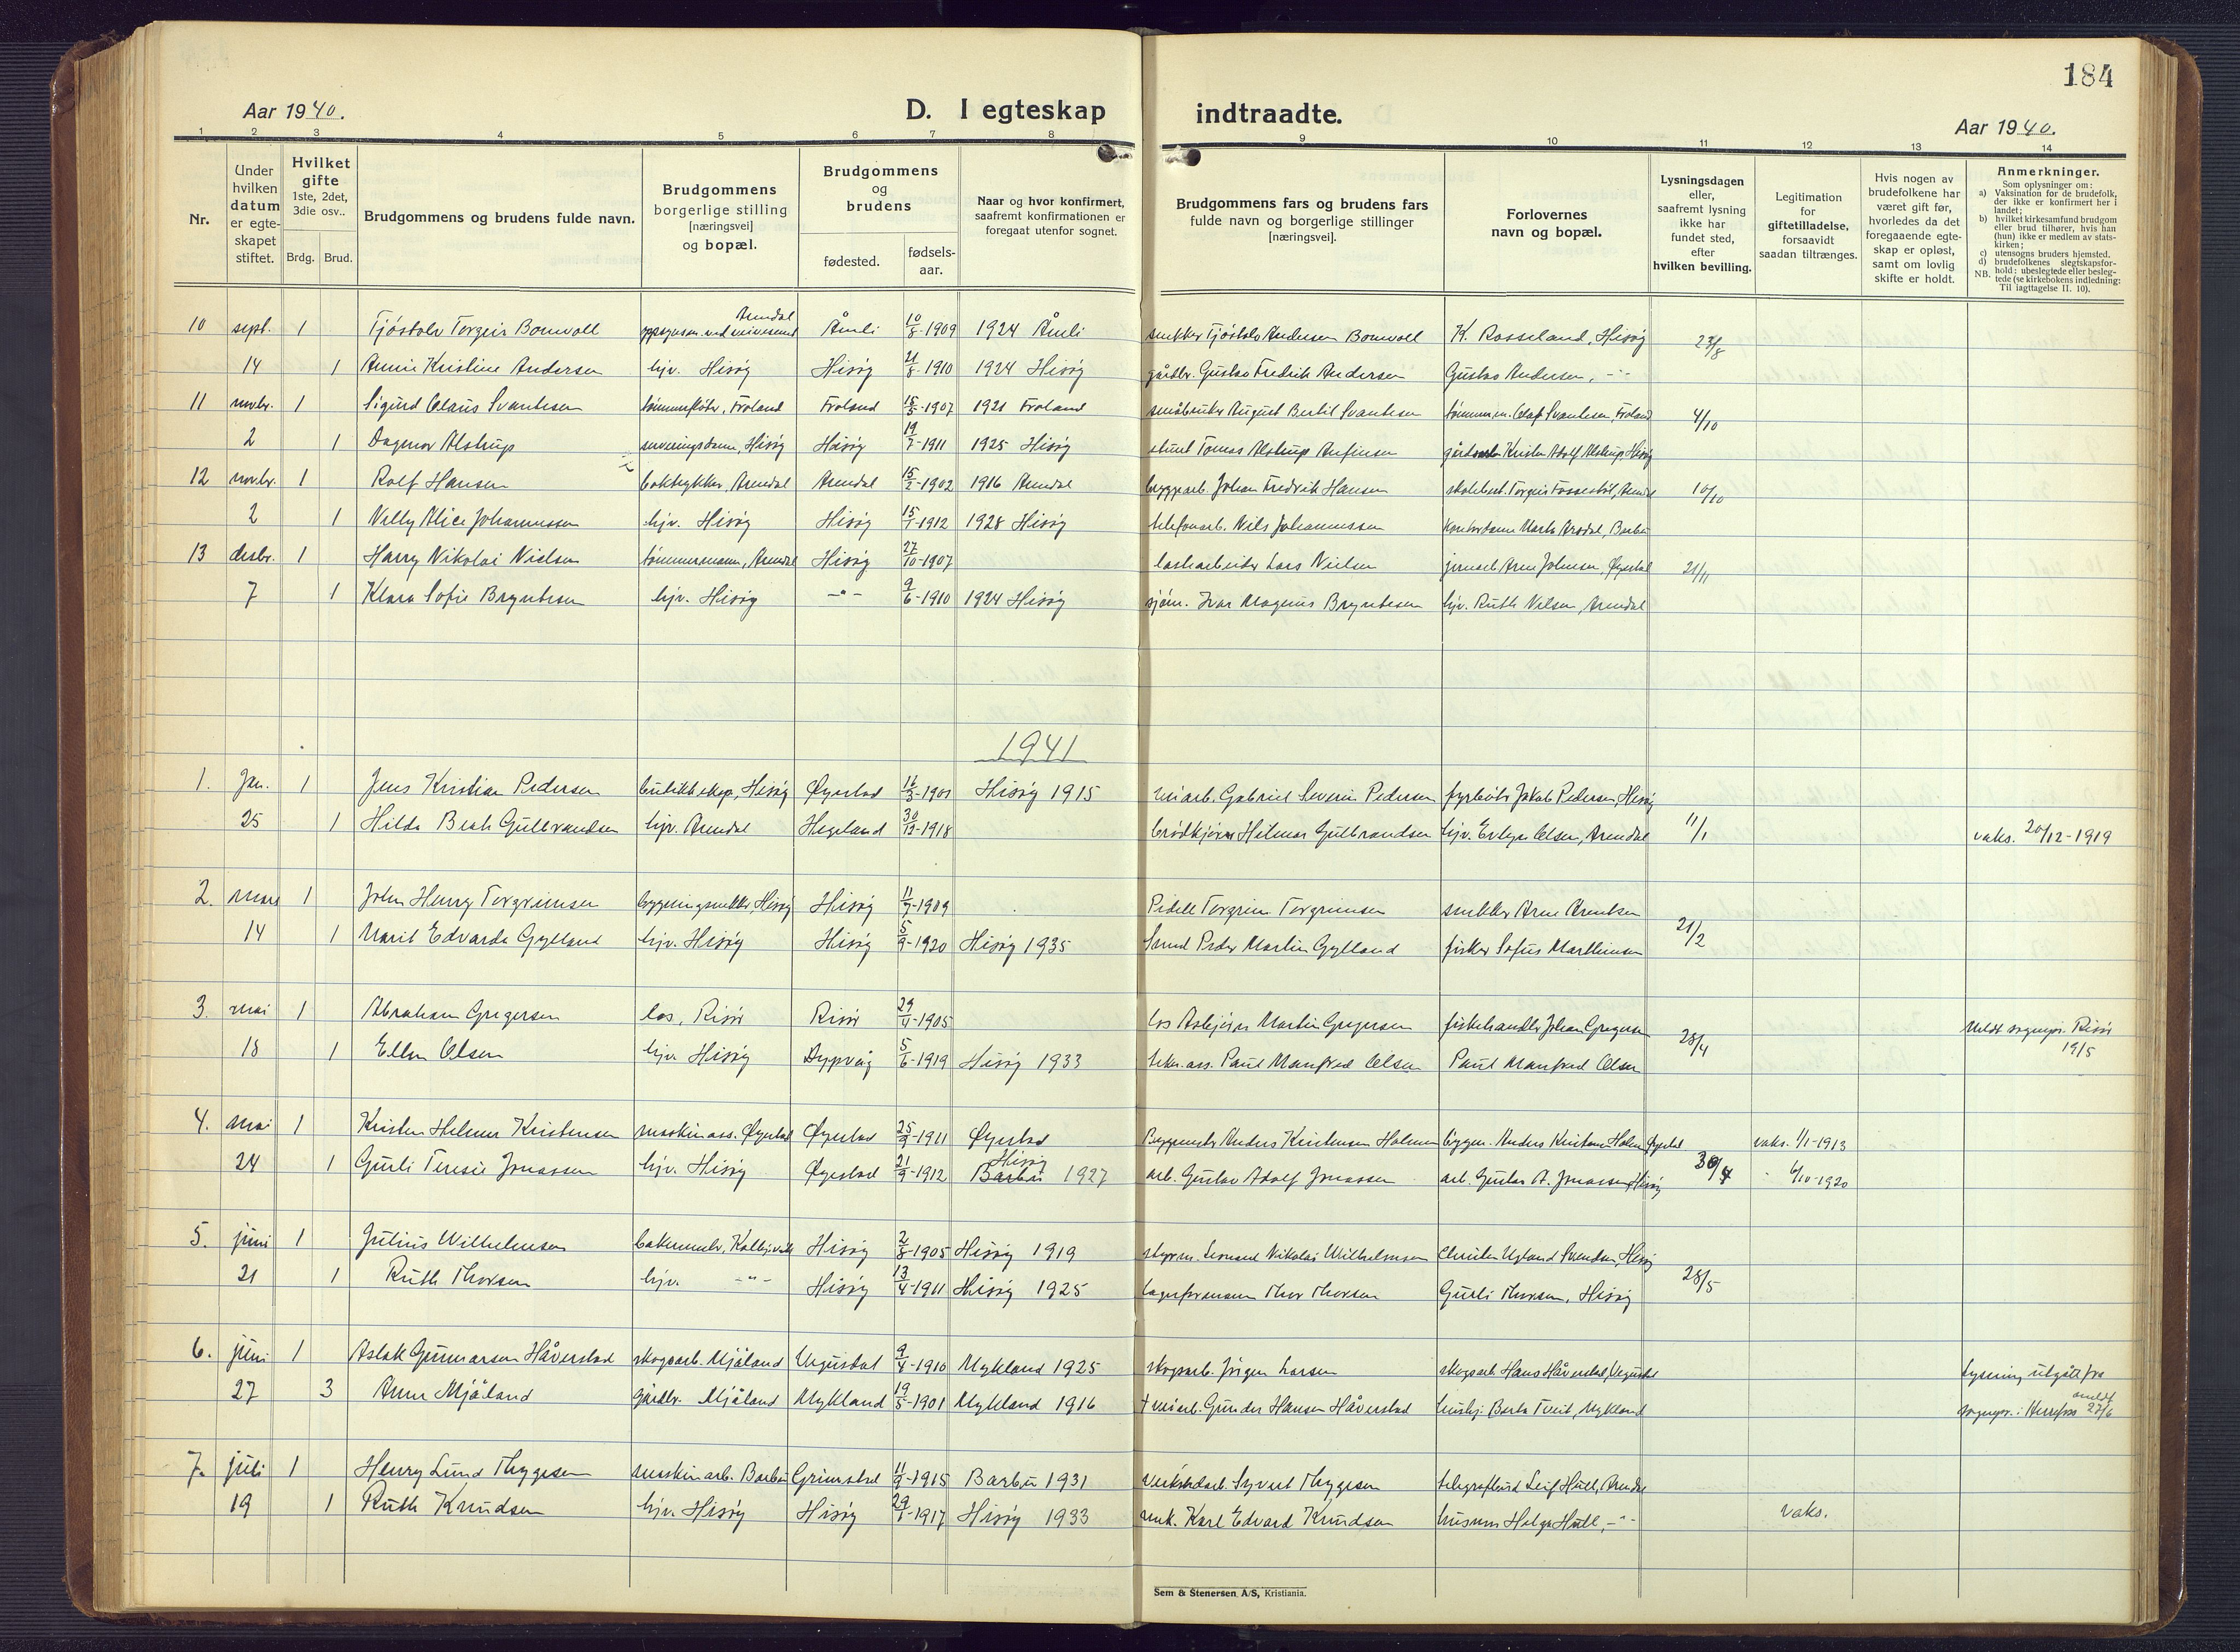 184
Aar 1940.
D. I egteskap indtraadte.
Aar 1940.
1 2 3 4 5 6 7 8 9 10 11 12 13 14
Nr.
Under hvilken datum er egte-skapet stiftet.
Hvilket gifte 1ste, 2det, 3die osv..
Brdg. Brud.
Brudgommens og brudens fulde navn.
Brudgommens borgerlige stilling [næringsvei] og bopæl.
Brudgommens og brudens
fødested. fødsels-aar.
Naar og hvor konfirmert, saafremt konfirmationen er foregaat utenfor sognet.
Brudgommens fars og brudens fars fulde navn og borgerlige stillinger [næringsvei].
Forlovernes navn og bopæl.
Lysningsdagen eller, saafremt lysning ikke har fundet sted, efter hvilken bevilling.
Legitimation for giftetilladelse, forsaavidt saadan tiltrænges.
Hvis nogen av brudefolkene har været gift før, hvorledes da det foregaaende egte-skap er opløst, samt om lovlig skifte er holdt.
Anmerkninger.
Som oplysninger om:
a) Vaksination for de brudefolk, der ikke er konfirmert her i landet;
b) hvilket kirkesamfund brudgom eller brud tilhører, hvis han (hun) ikke er medlem av stats-kirken;
c) utensogns bruders hjemsted.
d) brudefolkenes slegtskapsfor-hold: ubeslegtede eller besleg-tede (se kirkebokens indledning: Til iagttagelse II. 10).
NB.
10 sept. 1 Tjöstolv Torgeir Bomvoll Arendal Åmli 10/8-1909 1924 Åmli snekker Tjöstolv Andersen Bomvoll K. Rosseland, Hisøy 23/8
14 1 Annie Kristine Andersen hjv. Hisøy Hisøy 21/8-1910 1924 Hisøy gårdbr. Gustav Fredrik Andersen Gustav Andersen, -"-
11 novbr. 1 Sigurd Olaus Svantesen tömmerfløter, Froland Froland 1907 1921 Froland småbruker August Bertil Svantesen tömmerm. Olaf Svantesen, Froland 4/10
2 1 Dagmar Alstrup serveringsdame, Hisøy Hisøy 19/7-1911 1925 Hisøy Tomas Alstrup Kristen Adolf Alstrup, Hisøy
12 novbr. 1 Rolf Hansen boktrykker, Arendal Arendal 15/2-1902 1916 Arendal bryggearb. Johan Fredrik Hansen Arendal 10/10
2 1 Nelly Alice Johannessen hjv. Hisøy Hisøy 15/1-1912 1928 Hisøy telefonarb. Nils Johannessen kontordame Barbu
13 desbr. 1 Harry Nikolai Nielsen tömmermann, Arendal Hisøy 27/10-1907 lastearbeider Lars Nielsen jernarb. Arne Johnsen, Øyestad 21/11
7 1 Klara Sofie Bryntesen hjv. Hisøy -"- 9/6-1910 1924 Hisøy sjöm. Ivar Magnus Bryntesen hjv. Ruth Nilsen, Arendal
1941
1. Jan. 1 Jens Kristian Pedersen Hisøy Øyestad 16/3-1901 Hisøy 1915 veiarb. Gabriel Severin Pedersen fyrbøter Jakob Pedersen, Hisøy
25 1 Hilda Gulbrandsen hjv. Arendal Hegeland 1918 brødkjører Helmer Gulbrandsen hjv. Evelyn Olsen, Arendal 11/1 vaks. 20/12-1919
2. mars 1 John Henry Torgrimsen bygningsnekker, Hisøy Hisøy 1909 Pedell Torgrim Torgrimsen snekker Arne Arentsen
14 1 Marit Edvarda Gylland hjv. Hisøy Hisøy 5/9-1920 Hisøy 1935 Peder Martin Gylland fisker Sofus Marthinsen 21/2
3. mai 1 Abraham Gregersen los, Risør Risør 29/4-1905 los Martin Gregersen fiskehandler Johan Gregersen Meldt sognepr. Risør
18 1 Ellen Olsen hjv. Hisøy Dypvåg 1919 Hisøy 1933 Paul Manfred Olsen Paul Manfred Olsen 28/4 19/5
4. mai 1 Kristen Helmer Kristensen maskinass. Øyestad Øyestad 25/9-1911 Øyestad Byggmester Anders Kristensen Holmen byggm. Anders Kristensen Holmen Øyestad vaks. 1/1-1913
24 1 Gurli Teresie Jonassen hjv. Hisøy Øyestad 21/9-1912 Hisøy Barbu 1927 arb. Gustav Adolf Jonassen arb. Gustav A. Jonassen, Hisøy 30/4 " 6/10-1920
5. juni 1 Julius Wilhelmsen Kolbjørnsvik Hisøy 2/8-1905 Hisøy 1919 Nikolai Wilhelmsen Svendsen, Hisøy
21 1 Ruth Thorsen hjv. -"- Hisøy 13/4-1911 Hisøy 1925 lagerformann Thor Thorsen Gurli Thorsen, Hisøy 28/5
6. juni 1 Aslak Gunnarsen Håverstad skogsarb. Mjåland Vegusdal 9/4-1910 Mykland 1925 skogsarb. Jørgen Larsen skogsarb. Hans Håverstad, Vegusdal Lysning utgått fra
27 3 Anne Mjåland gårdbr. Mjåland Mykland 19/5-1901 Mykland 1916 † veiarb. Gunder Hansen Håverstad Berta Tveit, Mykland sognepr. i Herefoss anmeldt 27/6
7. juli 1 Henry Lund Thygesen maskinarb. Barbu Grimstad 11/9-1915 Barbu 1931 verkstedarb. Syvert Thygesen Leif Hull, Arendal
19 1 Ruth Knudsen hjv. Hisøy Hisøy 29/1-1917 Hisøy 1933 Karl Edvard Knudsen Helga Hull, -"- vaks.
Sem & Stenersen A/S, Kristiania.